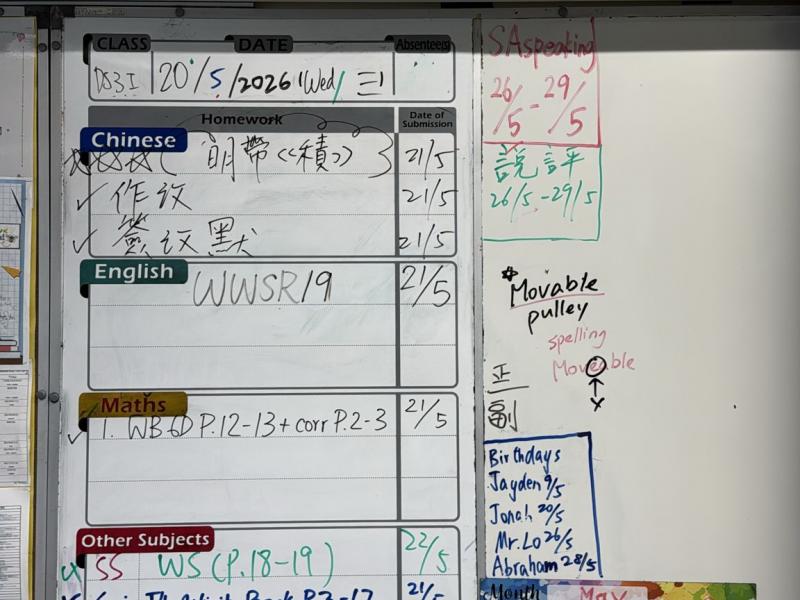 CLASS DATE Absentees
DS3I 20/5/2026 Wed 三
Homework Date of Submission
Chinese
明帶《積》 21/5
作文 21/5
簽文默 21/5
English
WWSR19 21/5
Maths
1. WB 6D P.12-13 + corr P.2-3 21/5
Other Subjects
SS WS (P.18-19) 22/5
21/5
SAspeaking
26/5 - 29/5
說評
26/5 - 29/5
* Movable
pulley
spelling
Moveable
x
正
副
Birthdays
Jayden 9/5
Jonah 20/5
Mr. Lo 26/5
Abraham 28/5
Month May